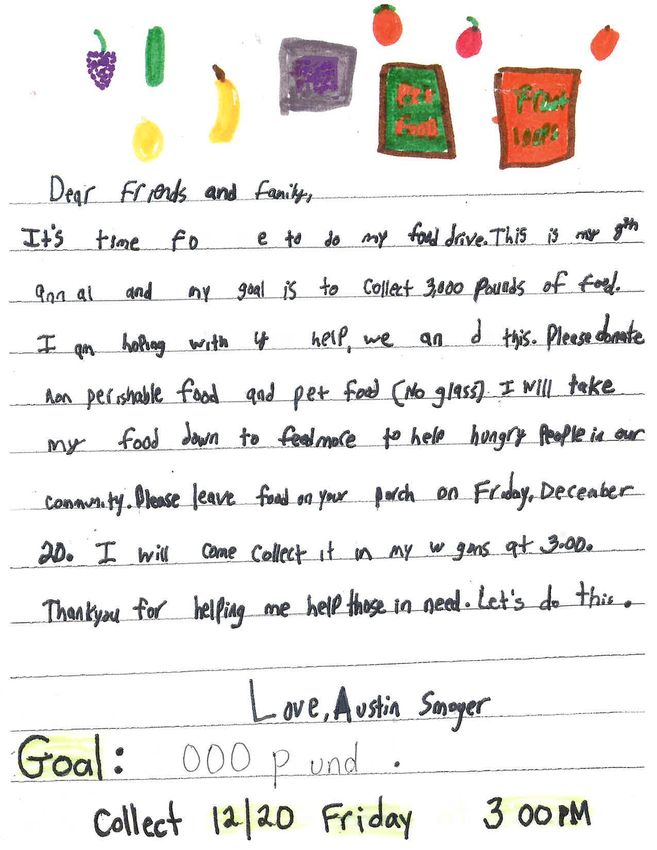 Pet
Food
Froot
Loops
Dear Friends and Family,
It's time fo e to do my food drive. This is my 8th
ann al and my goal is to collect 3,000 pounds of food.
I am hoping with y help, we an d this. Please donate
non perishable food and pet food (No glass). I will take
my food down to feedmore to help hungry people in our
community. Please leave food on your porch on Friday, December
20. I will come collect it in my w gons at 3:00.
Thankyou for helping me help those in need. Let's do this.
Love, Austin Smoyer
Goal: 000 p und .
Collect 12/20 Friday 3 00 PM